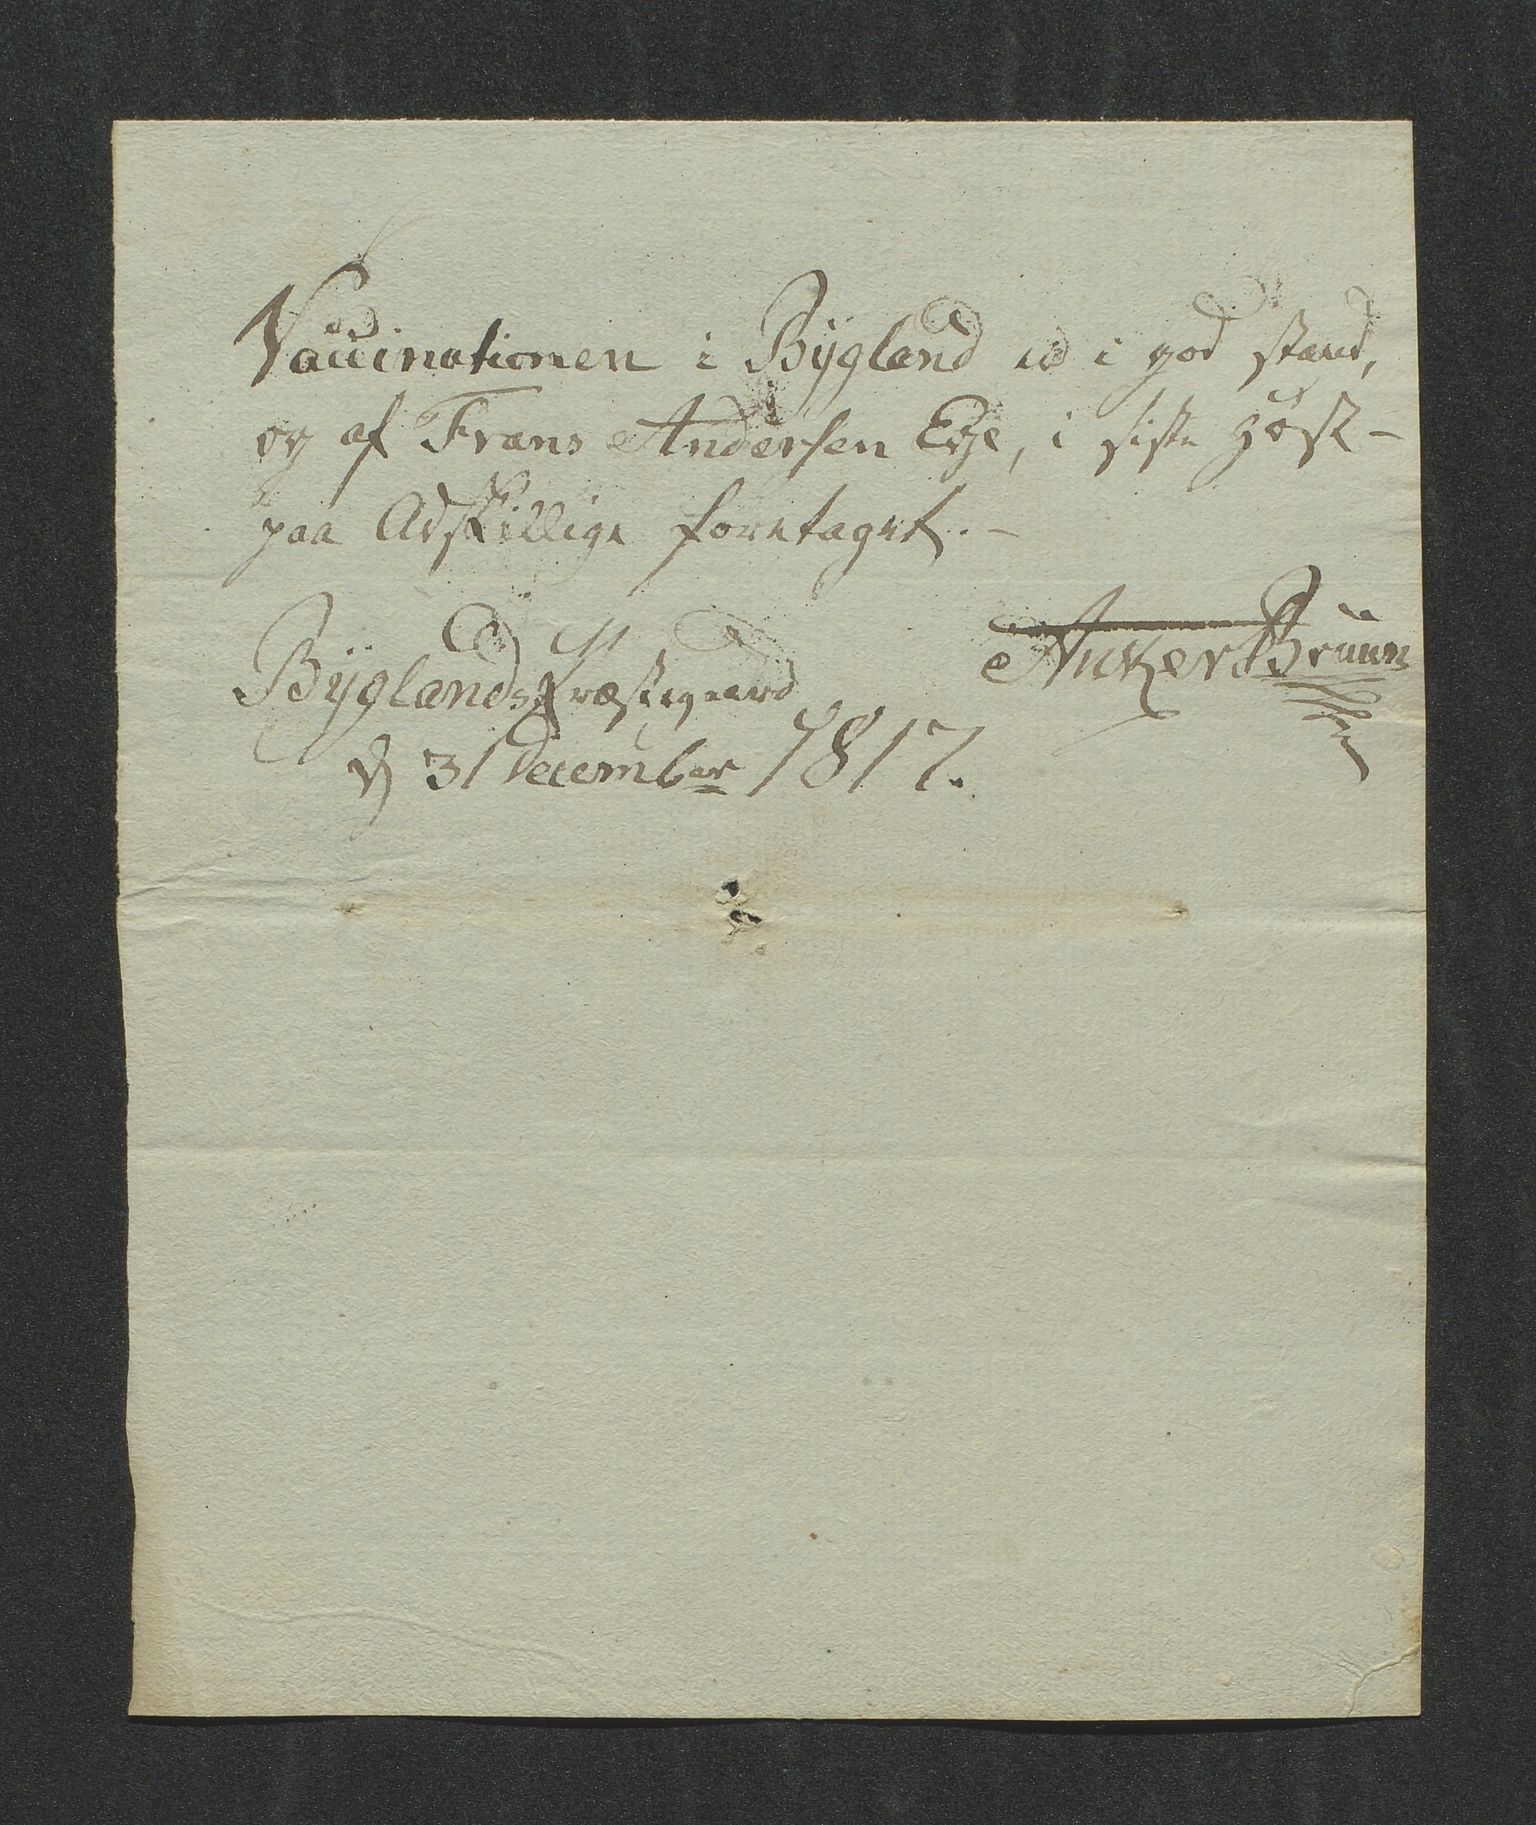 Vaccinationen i Bÿgland er i god stand,
og af Frans Andersen Ege, i siste Høst -
paa Adskillige foretaget. -
Bÿglands Præstegaard
Anker Bruun
d 31 December 1817.